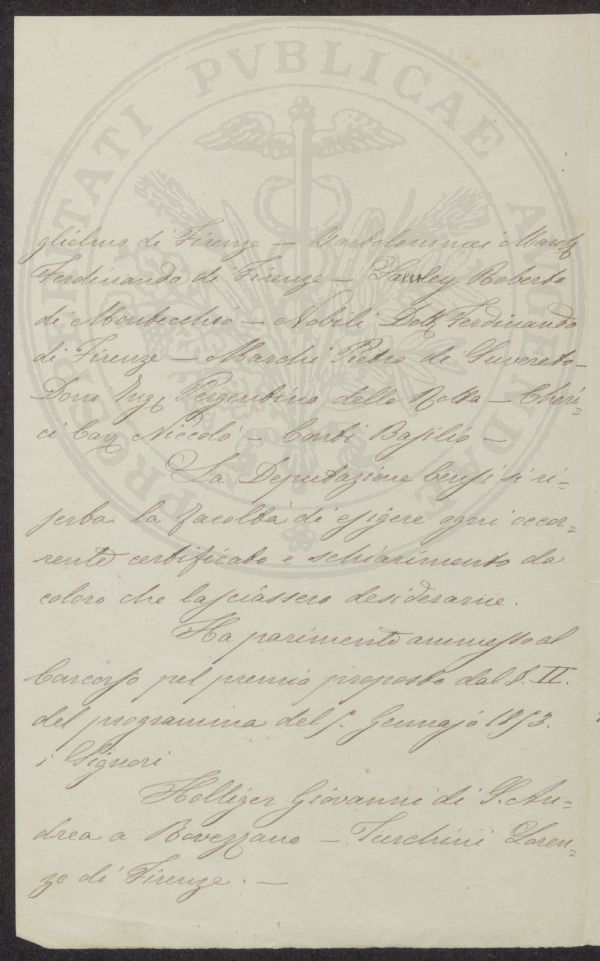 PROSPERITATI PVBLICAE AVGENDAE
glielmo di Firenze — Bartolommei March
Ferdinando di Firenze — Lawley Roberto
di Montecchio — Nobili Dott. Ferdinando
di Firenze — Marchi Pietro di Suvereto —
Doni Ing. Pergentino della Rotta — Cheri=
ci Cav. Niccolò — Conti Basilio —
La Deputazione bensì si ri=
serba la facoltà di esigere ogni occor=
rente certificato e schiarimento da
coloro che lasciassero desiderarne.
Ha parimente ammesso al
Concorso pel premio proposto dal §. II.
del programma del 5. Gennajo 1853.
i Signori
Holliger Giovanni di S. An=
drea a Rovezzano — Turchini Loren=
zo di Firenze. —